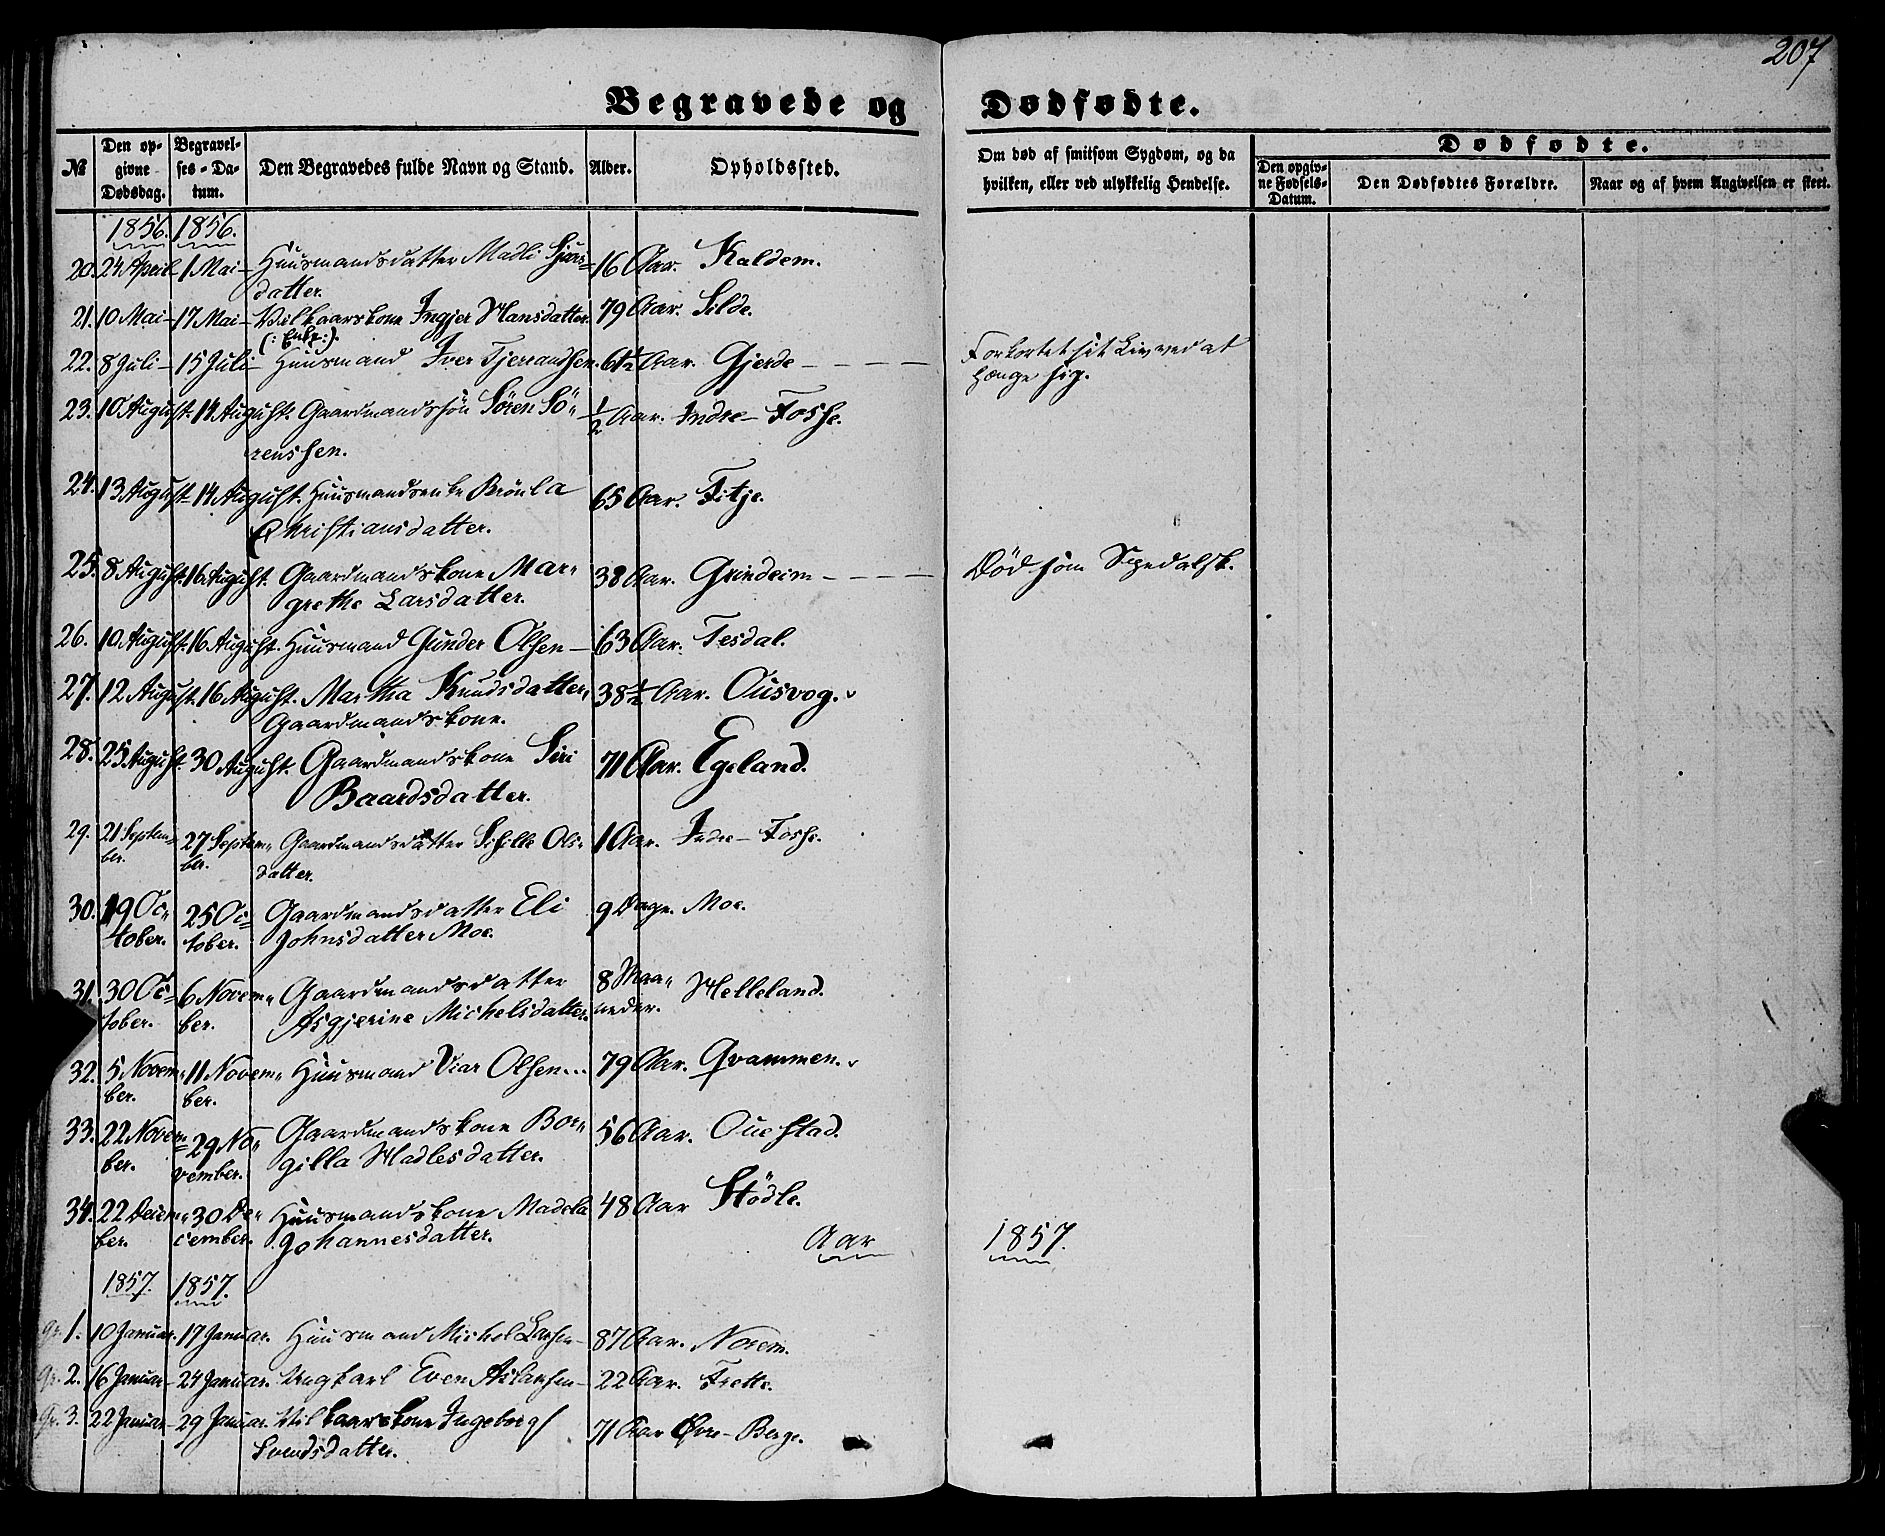 207
Begravede og Dødfødte.
№ Den opgivne Dødsdag. Begravelses-Datum. Den Begravedes fulde Navn og Stand. Alder. Opholdssted. Om død af smitsom Sygdom, og da hvilken, eller ved ulykkelig Hendelse. Dødfødte. Den opgivne Fødsels-Datum. Den Dødfødtes Forældre. Naar og af hvem Angivelsen er skeet.
1856. 1856.
20. 24 April 1 Mai - Huusmandsdatter Madli Sjurs= 16 Aar. Kaldem.
datter.
21. 10 Mai - 17 Mai - Vilkaarskone Ingjer Hansdatter 79 Aar. Silde.
(: Enke :).
22. 8 Juli - 15 Juli - Huusmand Iver Tjerandsen. 61½ Aar. Gjerde - - - - Forkortet sit Liv ved at
hænge sig.
23. 10 August. 14 August. Gaardmandssøn Sören Sö" ½ Aar. Indre- Fosse.
renssen.
24. 13 August - 14 August. Huusmandsenke Brönla 65 Aar. Fitje.
Christiansdatter.
25. 8 August. 16 August. Gaardmandskone Mar" 38 Aar. Grindeim - - - - Död som Spedalsk.
grethe Larsdatter.
26. 10 August. 16 August. Huusmand Gunder Olsen - 63 Aar. Tesdal.
27. 12 August. 16 August. Martha Knudsdatter, 38½ Aar. Ousvog.
Gaardmandskone.
28. 25 August. 30 August. Gaardmandskone Siri 71 Aar. Egeland.
Baardsdatter.
29. 21 Septem= 27 Septem" Gaardmandsdatter Sisille Ols" 1 Aar. Indre- Fosse.
ber. ber. datter.
30. 19 Oc" 25 Oc= Gaardmandsdatter Eli 9 Dage. Moe.
tober. tober. Johnsdatter Moe.
31. 30 Oc= 6 Novem" Gaardmandsdatter 8 Maa" Helleland.
tober. ber. Asgjerine Michelsdatter. neder.
32. 5 Novem" 11 Novem" Huusmand Viar Olsen... 79 Aar. Qvammen.
ber. ber.
33. 22 Novem 29 No" Gaardmandskone Bor" 56 Aar. Ouestad.
ber. vember. gilla Madlesdatter.
34. 22 Decem" 30 De" Huusmandskone Madela 48 Aar Stödle.
ber. cember. Johannesdatter.
Aar 1857.
1857. 1857.
1. 10 Januar. 17 Januar. Huusmand Michel Larsen - 87 Aar. Norem.
2. 16 Januar - 24 Januar. Ungkarl Even Aslaksen - 22 Aar. Frette.
3. 22 Januar - 29 Januar. Vilkaarskone Ingeborg 71 Aar Øvre- Berge.
Svendsdatter.